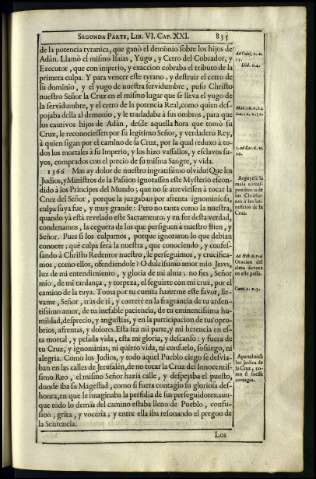 SEGUNDA PARTE, LIB. VI. CAP. XXI. 835
de la potencia tyranica, que ganò el demonio sobre los hijos de
Adàn. Llamò el mismo Isaias, Yugo, y Cetro del Cobrador, y
Executor, que con imperio, y exaccion cobraba el tributo de la
primera culpa. Y para vencer este tyrano, y destruir el cetro de
su dominio, y el yugo de nuestra servidumbre, puso Christo
nuestro Señor la Cruz en el mismo lugar que se lleva el yugo de
la servidumbre, y el cetro de la potencia Real, como quien des-
pojaba della al demonio, y le trasladaba à sus ombros, para que
los cautivos hijos de Adàn, desde aquella hora que tomò su
Cruz, le reconociessen por su legitimo Señor, y verdadero Rey,
à quien sigan por el camino de la Cruz, por la qual reduxo à to-
dos los mortales à su Imperio, y los hizo vassallos, y esclavos su-
yos, comprados con el precio de su misma Sangre, y vida.
1366 Mas ay dolor de nuestro ingratissimo olvido! Que los
Judios, y Ministros de la Passion ignorassen este Mysterio escon-
dido à los Principes del Mundo; que no se atreviessen à tocar la
Cruz del Señor, porque la juzgaban por afrenta ignominiosa,
culpa suya fue, y muy grande: Pero no tanto como la nuestra,
quando yà està revelado este Sacramento, y en fee desta verdad,
condenamos la ceguera de los que persiguen à nuestro bien, y
Señor. Pues si los culpamos, porque ignoraron lo que debian
conocer; què culpa serà la nuestra, que conociendo, y confes-
sando à Christo Redentor nuestro, le perseguimos, y crucifica-
mos, como ellos, ofendiendole? O dulcissimo amor mio Jesvs,
luz de mi entendimiento, y gloria de mi alma: no fies, Señor
mio, de mi tardança, y torpeza, el seguirte con mi cruz, por el
camino de la tuya. Toma por tu cuenta hazerme este favor, lle-
vame, Señor, tràs de ti, y correrè en la fragrancia de tu arden-
tissimo amor, de tu inefable paciencia, de tu eminentissima hu-
mildad, desprecio, y angustias, y en la participacion de tus opro-
brios, afrentas, y dolores. Esta sea mi parte, y mi herencia en es-
ta mortal, y pesada vida, esta mi gloria, y descanso: y fuera de
tu Cruz, y ignominias, ni quiero vida, ni consuelo, sossiego, ni
alegria. Como los Judios, y todo aquel Pueblo ciego se desvia-
ban en las calles de Jerusalèn, de no tocar la Cruz del innocentis-
simo Reo, el mismo Señor hazia calle, y despejaba el puesto,
donde iba su Magestad, como si fuera contagio su gloriosa des-
honra, en que le imaginaba la perfidia de sus perseguidores, aun-
que todo lo demàs del camino estaba lleno de Pueblo, confu-
sion, grita, y vozeria; y entre ella iba resonando el pregon de
la Sentencia.
Los